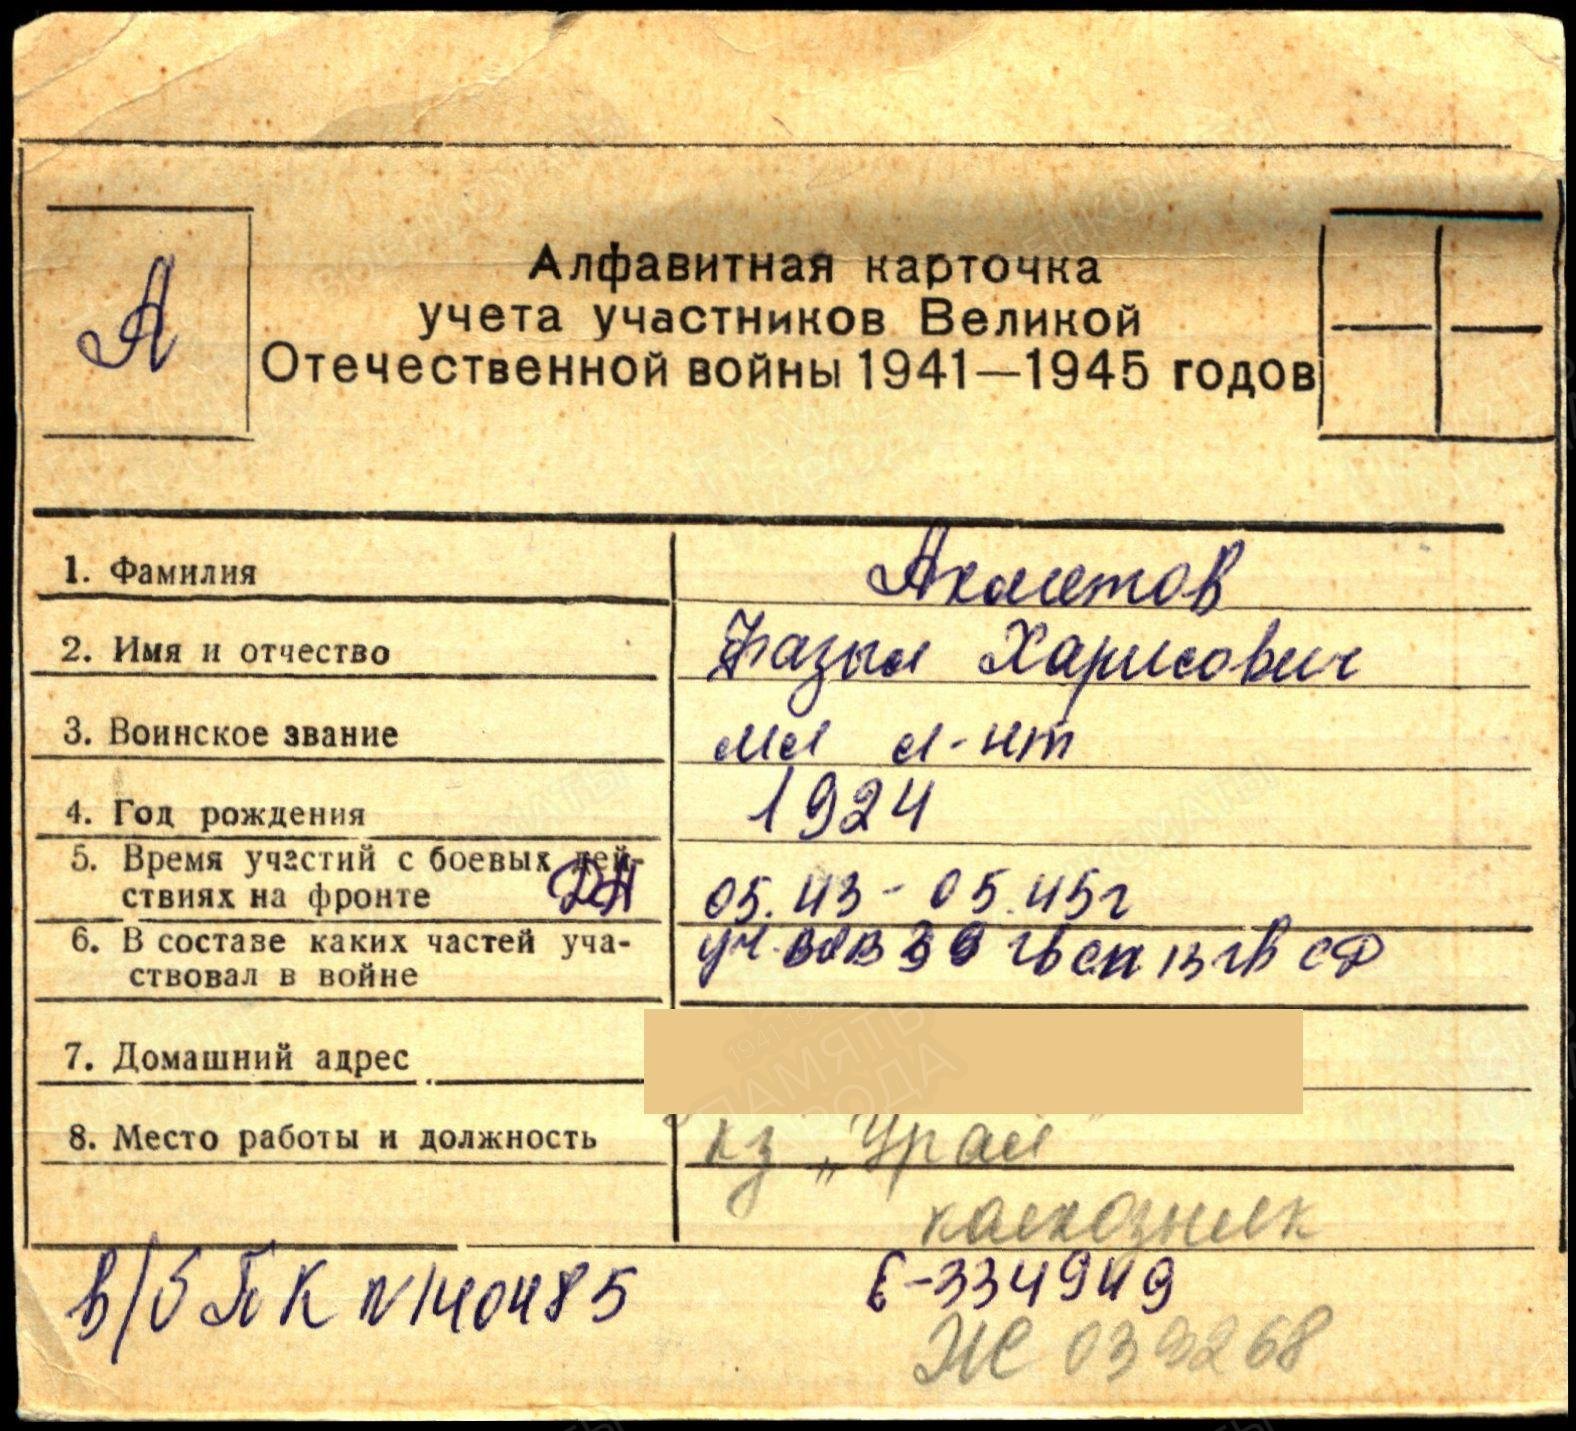 А
Алфавитная карточка
учета участников Великой
Отечественной войны 1941—1945 годов
1. Фамилия Ахметов
2. Имя и отчество Фазыл Харисович
3. Воинское звание мл л-нт
4. Год рождения 1924
5. Время участий с боевых дей-
ствиях на фронте ДА 05.43 - 05.45г
6. В составе каких частей уча-
ствовал в войне уч. ВОВ 39 гв сп 13 гв СД
7. Домашний адрес
8. Место работы и должность кз „Урал"
колхозник
в/б ПК N 140485 Е-334949
ЖС 039268
ПАМЯТЬ
НАРОДА